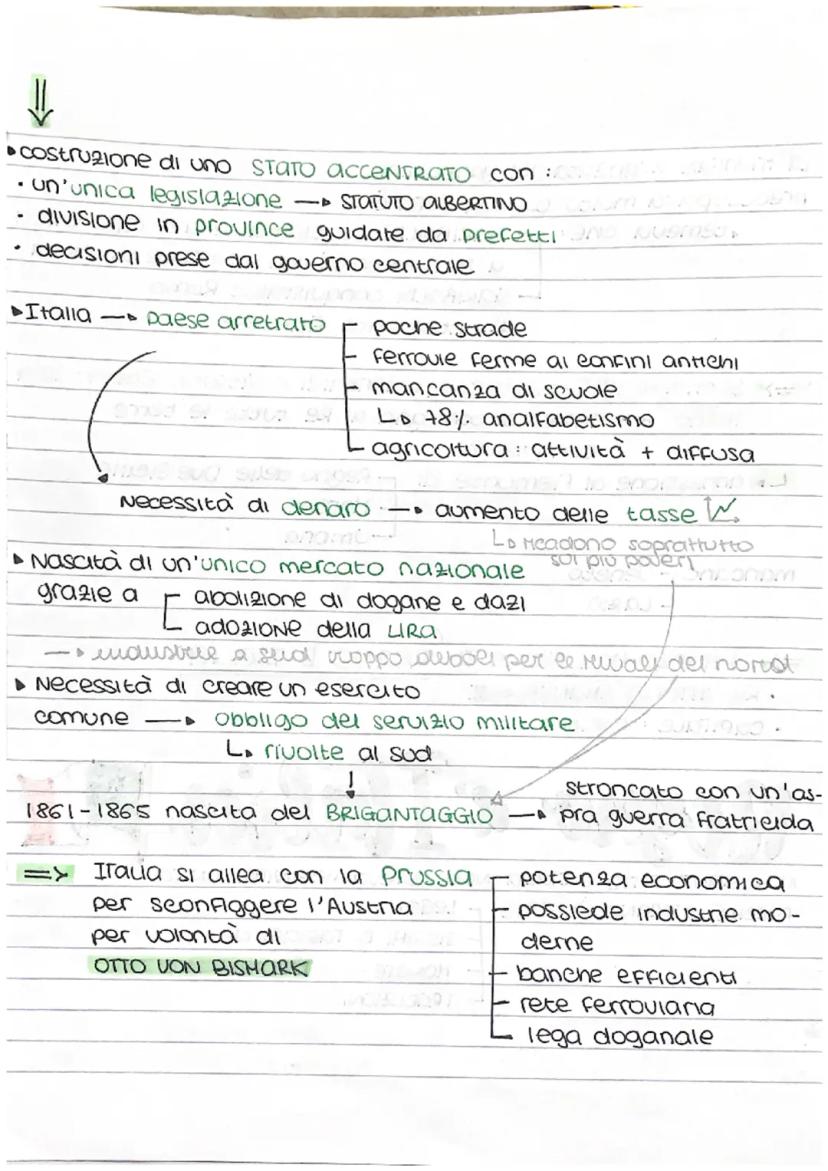 ⇓
▸costruzione di uno STATO ACCENTRATO con :
· un'unica legislazione → STATUTO ALBERTINO
· divisione in province guidate da prefetti
· decisioni prese dal governo centrale
▸Italia → paese arretrato
poche strade
ferrovie ferme ai confini antichi
mancanza di scuole
↳ 78% analfabetismo
agricoltura : attività + diffusa
Necessità di denaro → aumento delle tasse
↳ ricadono soprattutto
sui più poveri
▸ Nascita di un'unico mercato nazionale
grazie a
abolizione di dogane e dazi
adozione della LIRA
→ industrie a sud troppo deboli per le rivali del nord
▸ Necessità di creare un esercito
comune → obbligo del servizio militare
↳ rivolte al sud
↓
1861-1865 nascita del BRIGANTAGGIO → stroncato con un'as-
pra guerra fratricida
=> Italia si allea con la Prussia
per sconfiggere l'Austria
per volontà di
OTTO VON BISMARK
potenza economica
possiede industrie mo-
derne
banche efficienti
rete ferroviaria
lega doganale